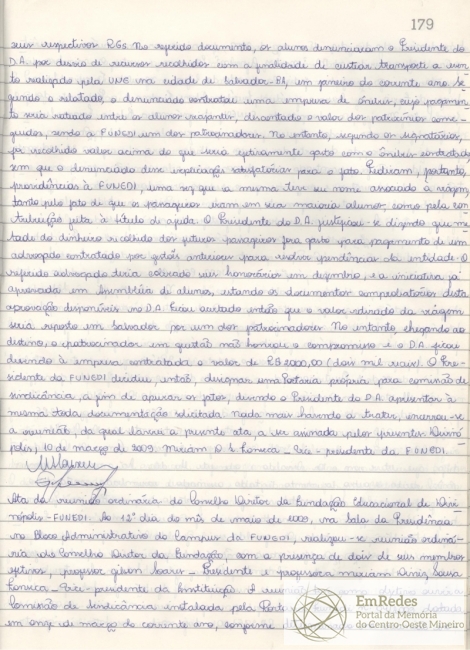 179
seus respectivos RGs. No referido documento, os alunos denunciaram o Presidente do
D.A. por desvio de recursos recolhidos com a finalidade de custear transporte a even
to realizado pela UNE na cidade de Salvador-BA, em janeiro do corrente ano. Se
gundo o relatado, o denunciado contratou uma empresa de ônibus, cujo pagamen
to seria rateado entre os alunos viajantes, descontado o valor dos patrocínios conse-
guidos, sendo a FUNEDI um dos patrocinadores. No entanto, segundo os signatários,
foi recolhido valor acima do que seria efetivamente gasto com o ônibus contratado
sem que o denunciado desse explicações satisfatórias para o fato. Pediram, portanto,
providências à FUNEDI, uma vez que a mesma teve seu nome associado à viagem,
tanto pelo fato de que os passageiros eram em sua maioria alunos, como pela con
tribuição feita à título de ajuda. O Presidente do D.A. justificou-se dizendo que me
tade do dinheiro recolhido dos futuros passageiros fora gasto para pagamento de um
advogado contratado por gestões anteriores para resolver pendências da entidade. O
referido advogado teria cobrado seus honorários em dezembro e a iniciativa foi
aprovada em Assembléia de alunos, estando os documentos comprobatórios desta
aprovação disponíveis no D.A. Ficou acertado então que o valor retirado da viagem
seria reposto em Salvador por um dos patrocinadores. No entanto chegando ao
destino, o patrocinador em questão não honrou o compromisso e o D.A. ficou
devendo à empresa contratada o valor de R$2000,00 (dois mil reais). O Pre-
sidente da FUNEDI decidiu, então, designar uma Portaria própria para comissão de
sindicância, a fim de apurar os fatos, devendo o Presidente do D.A. apresentar à
mesma toda documentação solicitada. Nada mais havendo a tratar, encerrou-se
a reunião, da qual lavrei a presente ata, a ser assinada pelos presentes. Divinó-
polis, 10 de março de 2009. Miriam D. S. Fonseca - Vice-presidente da FUNEDI.
Ata da reunião ordinária do Conselho Diretor da Fundação Educacional de Divi
nópolis - FUNEDI. Ao 12º dia do mês de maio de 2009, na Sala da Presidência
no Bloco Administrativo do Campus da FUNEDI, realizou-se reunião ordiná-
ria do Conselho Diretor da Fundação, com a presença de dois de seus membros
efetivos, professor Gilson Soares - Presidente e professora Miriam Diniz Sousa
Fonseca - Vice-presidente da Instituição. A
Comissão de Sindicância instalada pela Porta
em onze de março do corrente ano, conforme
EmRedes
Portal da Memória
do Centro-Oeste Mineiro